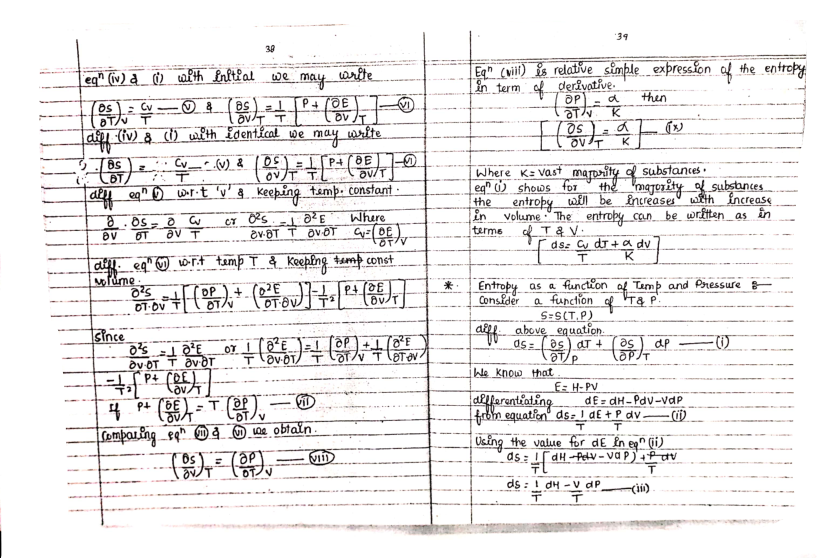 38
eqⁿ (iv) & (i) with initial we may write
(∂S/∂T)V = Cv/T —— (V) & (∂S/∂V)T = 1/T [P + (∂E/∂V)T] — (VI)
diff (iv) & (i) with identical we may write
(∂S/∂T) = Cv/T - (v) & (∂S/∂V)T = 1/T [P+(∂E/∂V)T] — (VI)
diff eqⁿ (V) w.r.t 'V' & keeping temp. constant.
∂/∂V . ∂S/∂T = ∂/∂V Cv/T or ∂²S/∂V·∂T = 1/T ∂²E/∂V·∂T Where Cv=(∂E/∂T)V
diff. eqⁿ (VI) w.r.t temp T & keeping temp const
volume.
∂²S/∂T·∂V = 1/T [(∂P/∂T)V + (∂²E/∂T·∂V)] - 1/T² [P+(∂E/∂V)T]
since
∂²S/∂V·∂T = 1/T ∂²E/∂V·∂T or 1/T (∂²E/∂V·∂T) = 1/T (∂P/∂T)V + 1/T (∂²E/∂T∂V)
-1/T² [P+ (∂E/∂V)T]
if P+ (∂E/∂V)T = T (∂P/∂T)V —— (VII)
Comparing eqⁿ (VII) & (VI) we obtain.
(∂S/∂V)T = (∂P/∂T)V —— (VIII)
39
Eqⁿ (viii) is relative simple expression of the entropy
in term of derivative.
(∂P/∂T)V = α/K then
[(∂S/∂V)T = α/K] — (ix)
Where K = Vast majority of substances.
eqⁿ (i) shows for the majority of substances
the entropy will be increases with increase
in volume. The entropy can be written as in
terms of T & V.
[ds = Cv/T dT + α/K dv]
* Entropy as a function of Temp and Pressure :-
Consider a function of T & P.
S=S(T,P)
diff. above equation.
ds = (∂S/∂T)P dT + (∂S/∂P)T dP —— (i)
We know that
E= H-PV
differentiating dE = dH-PdV-VdP
from equation ds = 1/T dE + P/T dv —— (ii)
Using the value for dE in eqⁿ (ii)
ds = 1/T [dH - PdV - VdP) + P dv/T
ds = 1/T dH - V/T dP —— (iii)